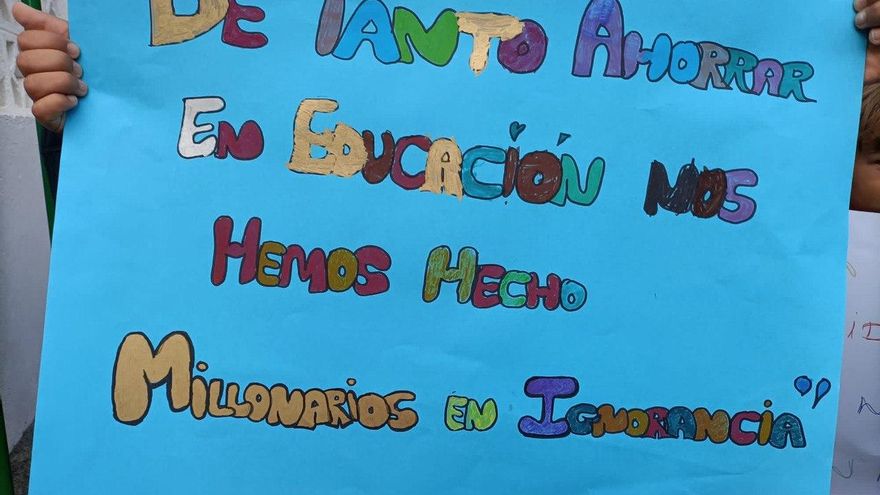 De Tanto Ahorrar
En Educación nos
Hemos Hecho
Millonarios en Ignorancia"